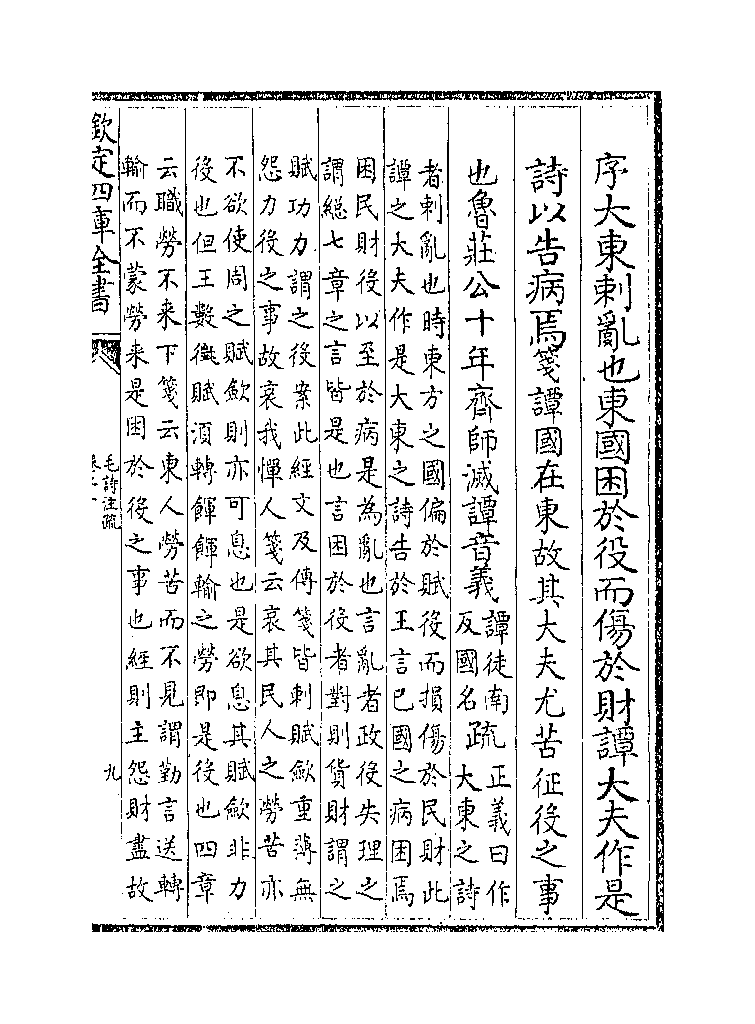 序大東刺亂也東國困於役而傷於財譚大夫作是
詩以告病焉箋譚國在東故其大夫尤苦征役之事
也魯莊公十年齊師滅譚音義譚徒南反國名疏正義曰作大東之詩
者刺亂也時東方之國偏於賦役而損傷於民財此
譚之大夫作是大東之詩告於王言已國之病困焉
困民財役以至於病是為亂也言亂者政役失理之
謂総七章之言皆是也言困於役者對則貨財謂之
賦功力謂之役案此經文及傳箋皆刺賦歛重薄無
怨力役之事故哀我憚人箋云哀其民人之勞苦亦
不欲使周之賦歛則亦可息也是欲息其賦歛非力
役也但王數徵賦須轉餫餫輸之勞即是役也四章
云職勞不来下箋云東人勞苦而不見謂勤言送轉
輸而不蒙勞来是困於役之事也經則主怨財盡故
欽定四庫全書
毛詩注疏
九